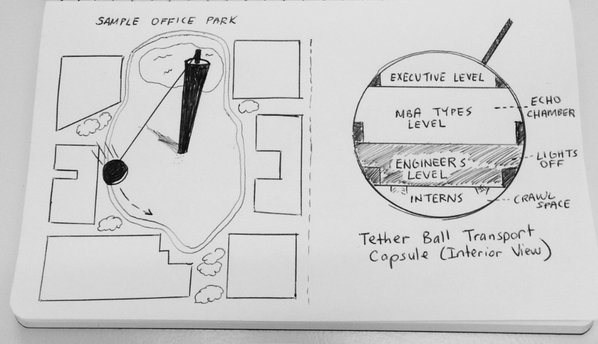 SAMPLE OFFICE PARK
EXECUTIVE LEVEL
MBA TYPES
LEVEL
ECHO
CHAMBER
ENGINEERS'
LEVEL
LIGHTS
OFF
INTERNS
CRAWL
SPACE
Tether Ball Transport
Capsule (Interior View)